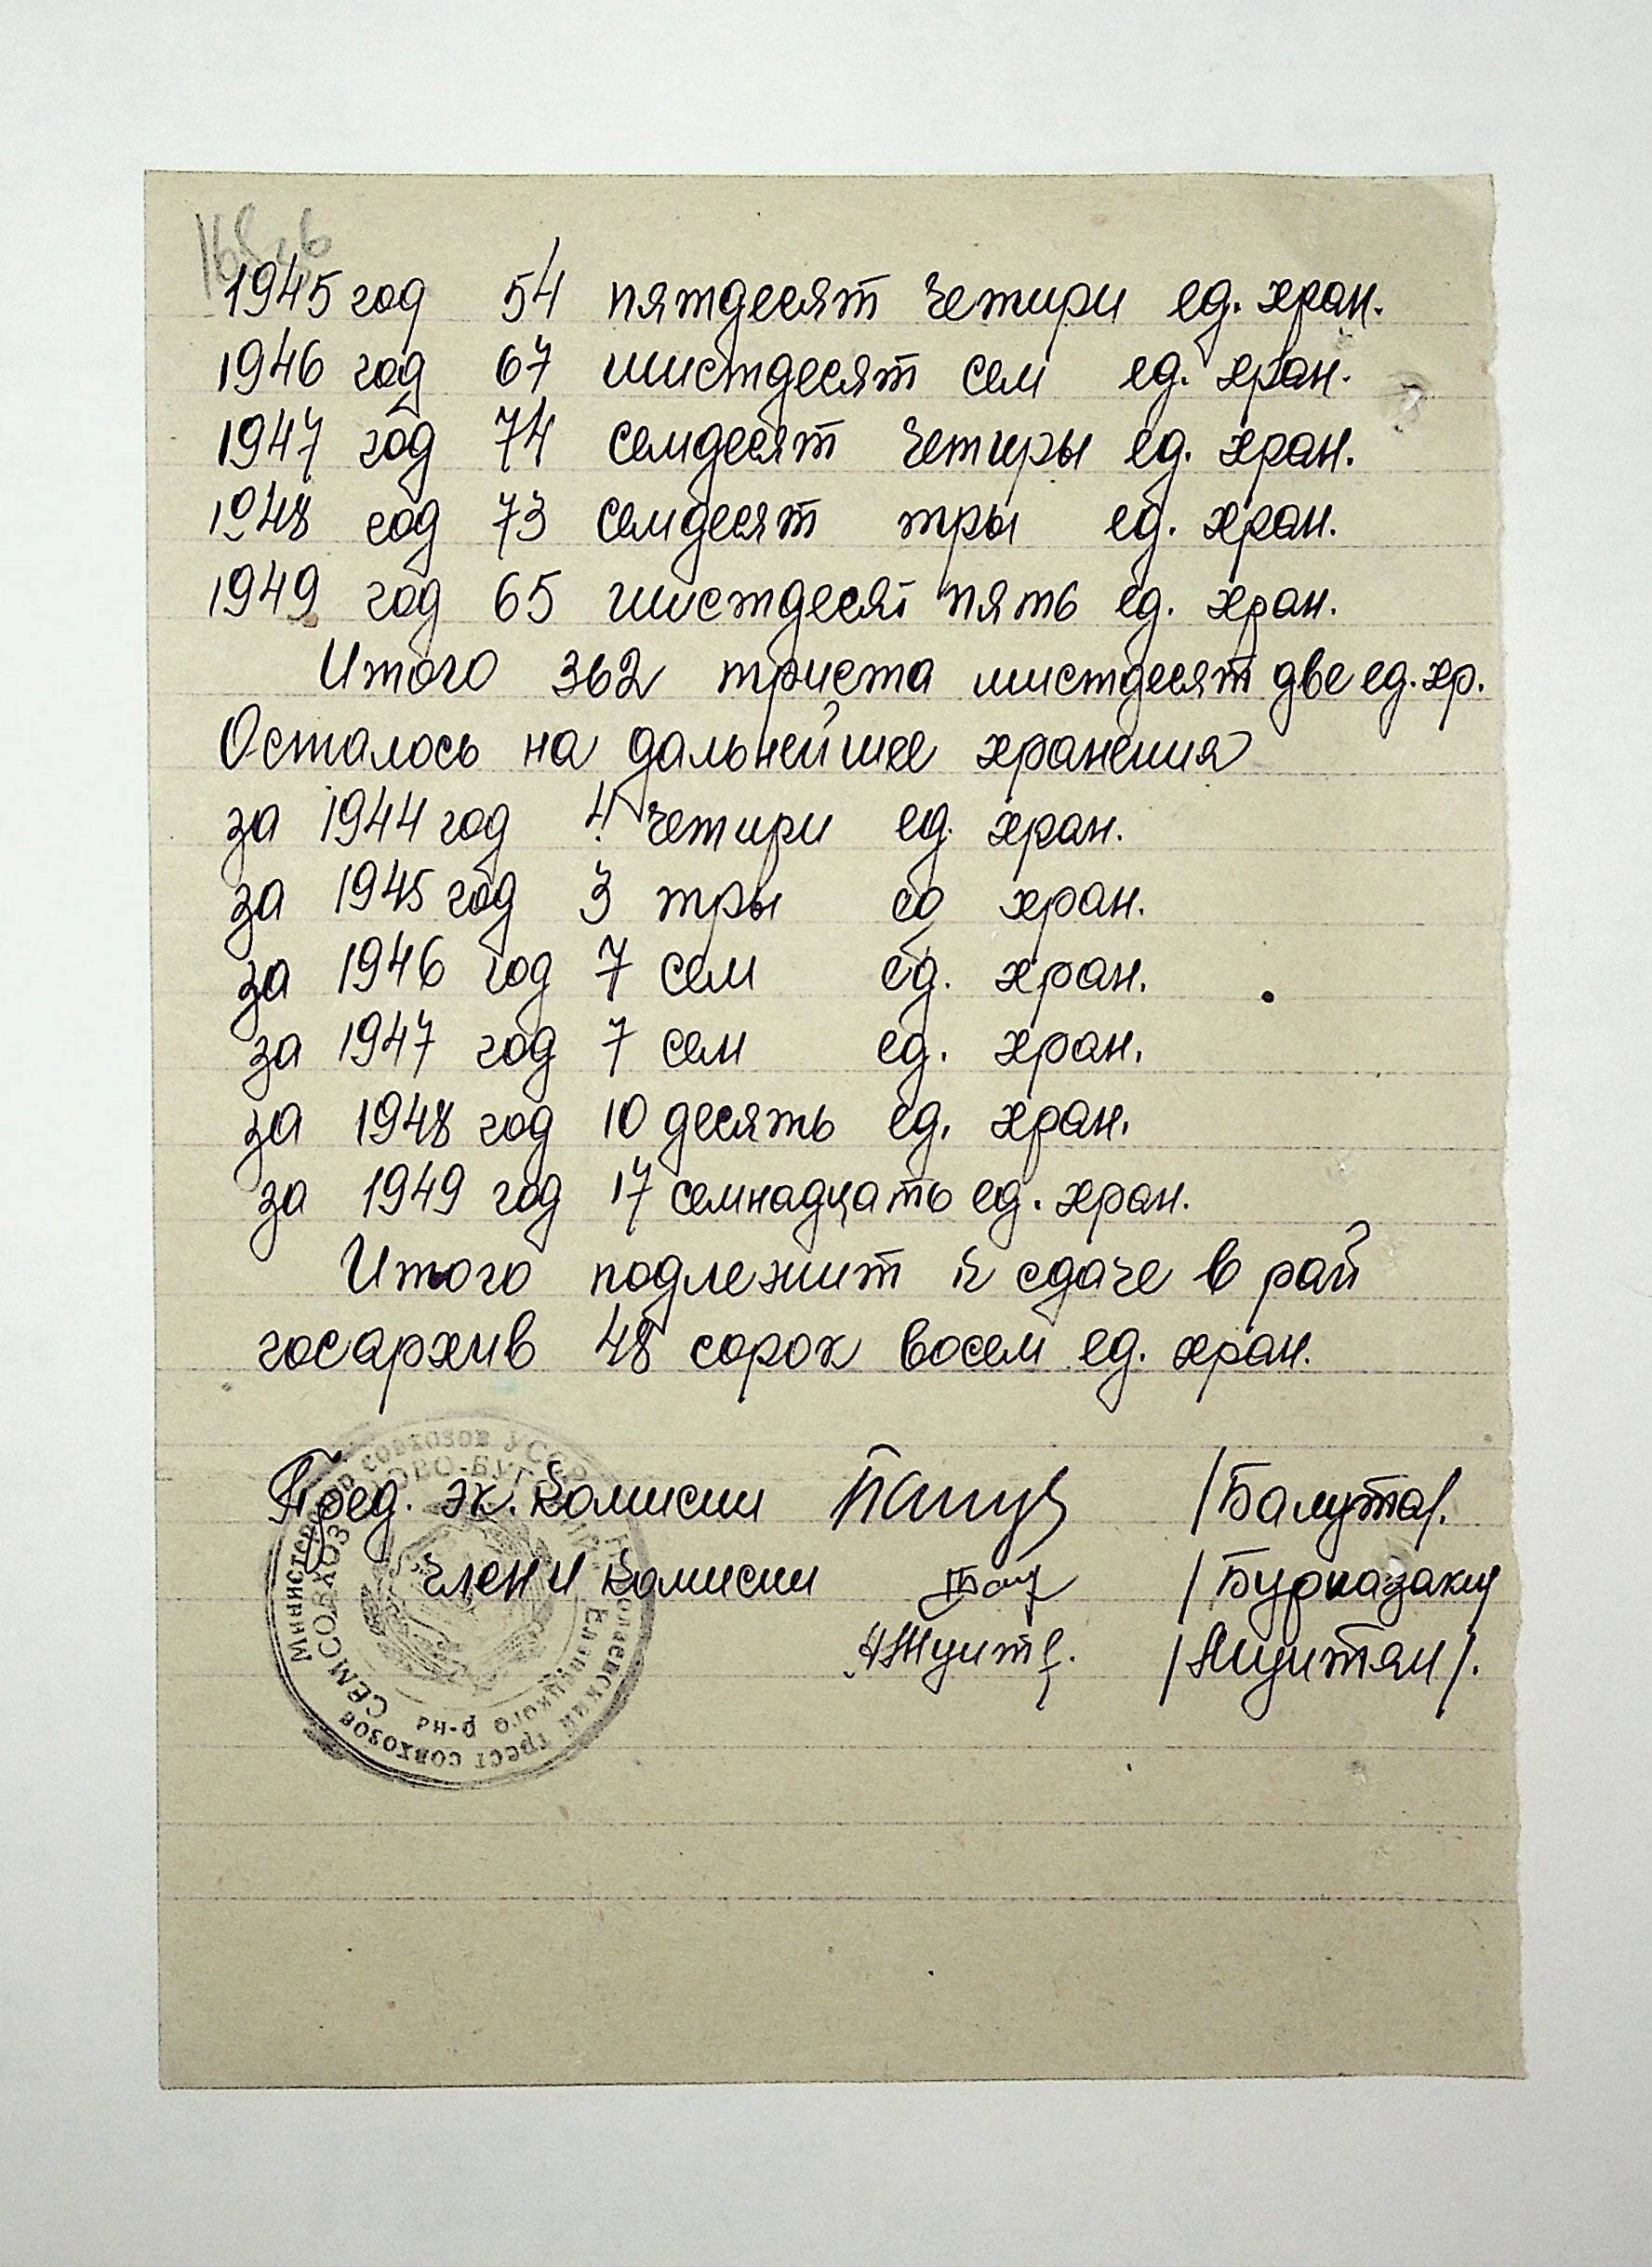 1945 год 54 пятдесят четири ед. хран.
1946 год 67 шистдесят сем ед. хран.
1947 год 74 семдесят четиры ед. хран.
1948 год 73 семдесят тры ед. хран.
1949 год 65 шистдесят пять ед. хран.
Итого 362 триста шистдесят две ед. хр.
Осталось на дальнейшее хранения
за 1944 год 4 четири ед. хран.
за 1945 год 3 тры ед хран.
за 1946 год 7 сем ед. хран.
за 1947 год 7 сем ед. хран.
за 1948 год 10 десять ед. хран.
за 1949 год 17 семнадцать ед. хран.
Итого подлежит к сдаче в рай
госархив 48 сорок восем ед. хран.
Пред. эк. комисии /Балута/.
члени комисии
Министерство совхозов УССР
Николаевский трест совхозов
СЕМСОВХОЗ
Еланецкого р-на